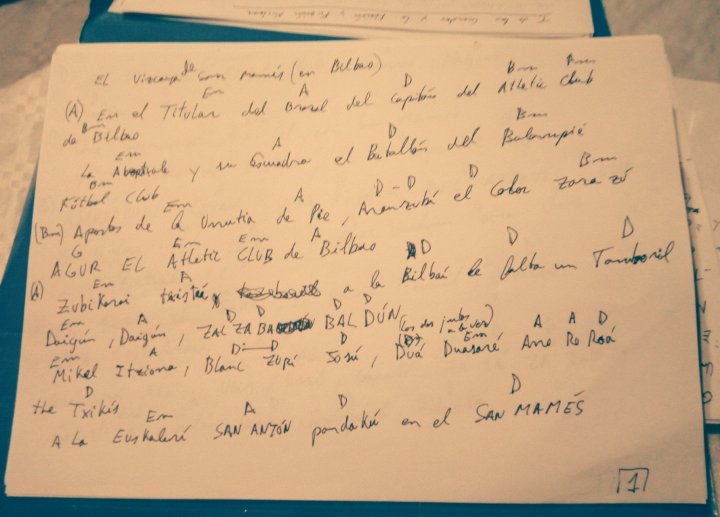 EL Vizcaya de San Mamés (en Bilbao)
Em A D Bm Bm
(A) En el Titular del Brazal del Capitán del Atletic Club
Bm
de Bilbao
Em A D Bm
La y su Cuadra el Batallón del Balompié
Bm
Fútbol Club
Em A D-D Bm
(Bm) Apostos de la Urrutia de Pie, Aranzubí el Color Zarazú
G Em Em A D D D
AGUR EL Atletic CLUB de Bilbao
Em A
(A) Zubikarai a la Bilbai le falta un Tamboril
Em A D D D D (los dos juntos a la vez)
Daigún, Daigún, ZALZABA BALDÚN
Em A D-D D Em A A D
Mikel Itziona, Blanc Zupi Josú, Duá Duasaré Ane Ro Roá
D
the Txikis
Em A D D
A La Euskaleré SAN ANTÓN pandakú en el SAN MAMÉS
1